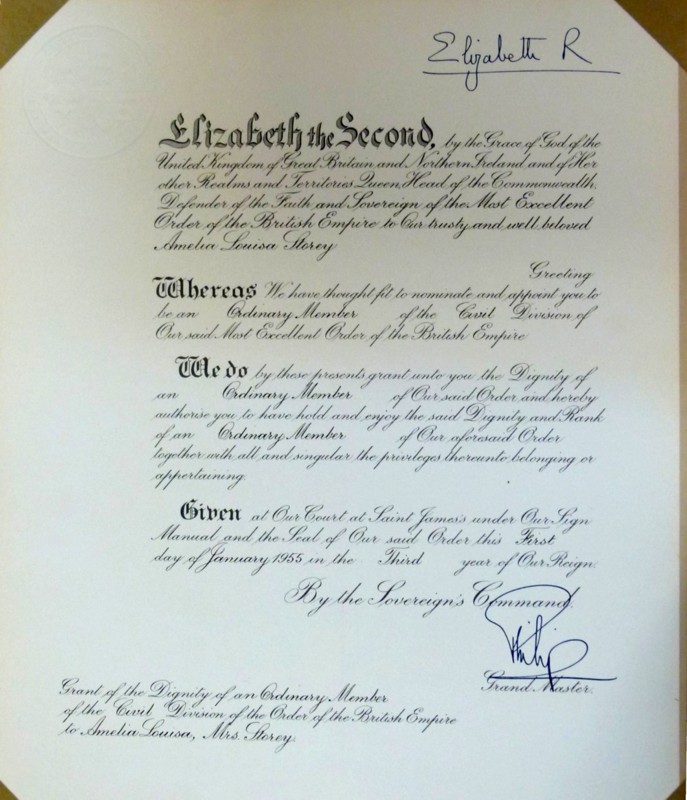 Elizabeth R
Elizabeth the Second, by the Grace of God of the
United Kingdom of Great Britain and Northern Ireland and of Her
other Realms and Territories Queen, Head of the Commonwealth,
Defender of the Faith and Sovereign of the Most Excellent
Order of the British Empire to Our trusty and well beloved
Amelia Louisa Storey
Greeting
Whereas We have thought fit to nominate and appoint you to
be an Ordinary Member of the Civil Division of
Our said Most Excellent Order of the British Empire
We do by these presents grant unto you the Dignity of
an Ordinary Member of Our said Order and hereby
authorise you to have hold and enjoy the said Dignity and Rank
of an Ordinary Member of Our aforesaid Order
together with all and singular the privileges thereunto belonging or
appertaining.
Given at Our Court at Saint James's under Our Sign
Manual and the Seal of Our said Order this First
day of January 1955 in the Third year of Our Reign.
By the Sovereign's Command.
Philip
Grand Master.
Grant of the Dignity of an Ordinary Member
of the Civil Division of the Order of the British Empire
to Amelia Louisa, Mrs. Storey.